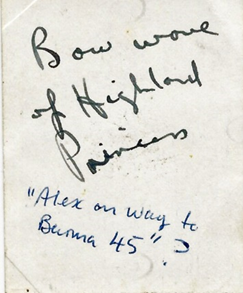 Bow wave
of Highland
Princess
"Alex on way to
Burma 45" ?